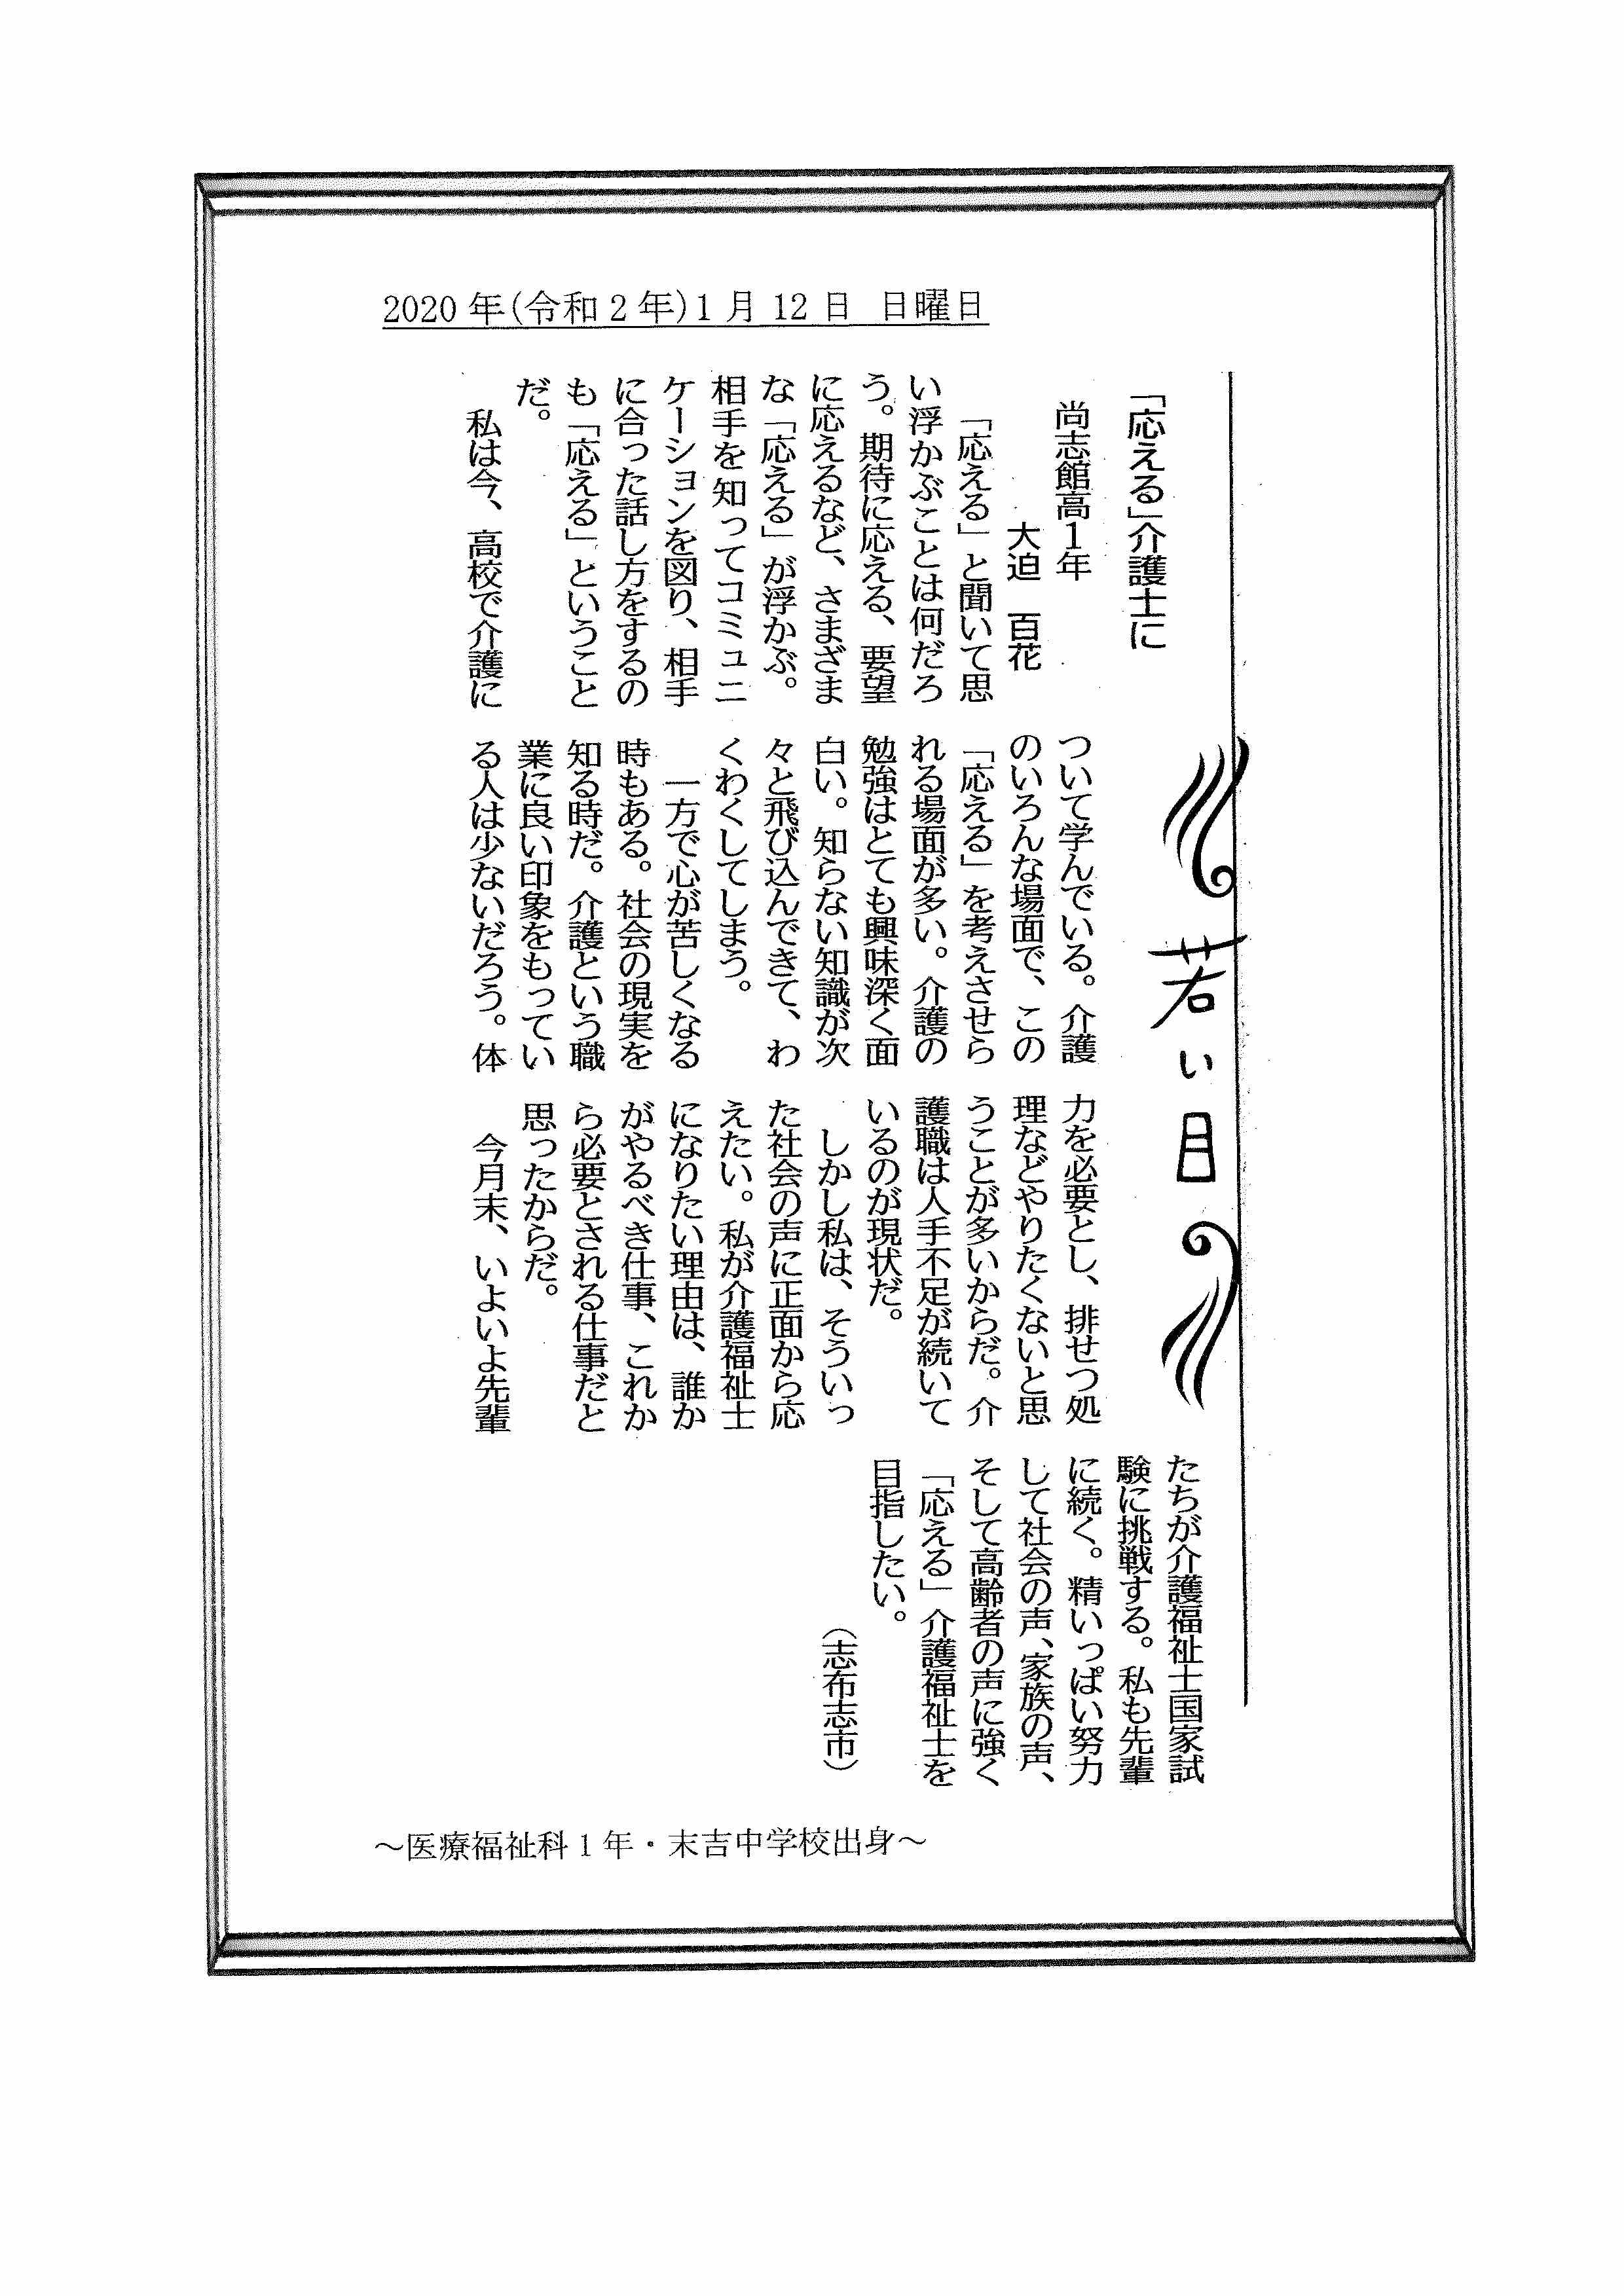 2020年(令和2年)1月12日 日曜日
若い目
「応える」介護士に
尚志館高1年
大迫 百花
「応える」と聞いて思
い浮かぶことは何だろ
う。期待に応える、要望
に応えるなど、さまざま
な「応える」が浮かぶ。
相手を知ってコミュニ
ケーションを図り、相手
に合った話し方をするの
も「応える」ということ
だ。
私は今、高校で介護に
ついて学んでいる。介護
のいろんな場面で、この
「応える」を考えさせら
れる場面が多い。介護の
勉強はとても興味深く面
白い。知らない知識が次
々と飛び込んできて、わ
くわくしてしまう。
一方で心が苦しくなる
時もある。社会の現実を
知る時だ。介護という職
業に良い印象をもってい
る人は少ないだろう。体
力を必要とし、排せつ処
理などやりたくないと思
うことが多いからだ。介
護職は人手不足が続いて
いるのが現状だ。
しかし私は、そういっ
た社会の声に正面から応
えたい。私が介護福祉士
になりたい理由は、誰か
がやるべき仕事、これか
ら必要とされる仕事だと
思ったからだ。
今月末、いよいよ先輩
たちが介護福祉士国家試
験に挑戦する。私も先輩
に続く。精いっぱい努力
して社会の声、家族の声、
そして高齢者の声に強く
「応える」介護福祉士を
目指したい。
(志布志市)
～医療福祉科1年・末吉中学校出身～